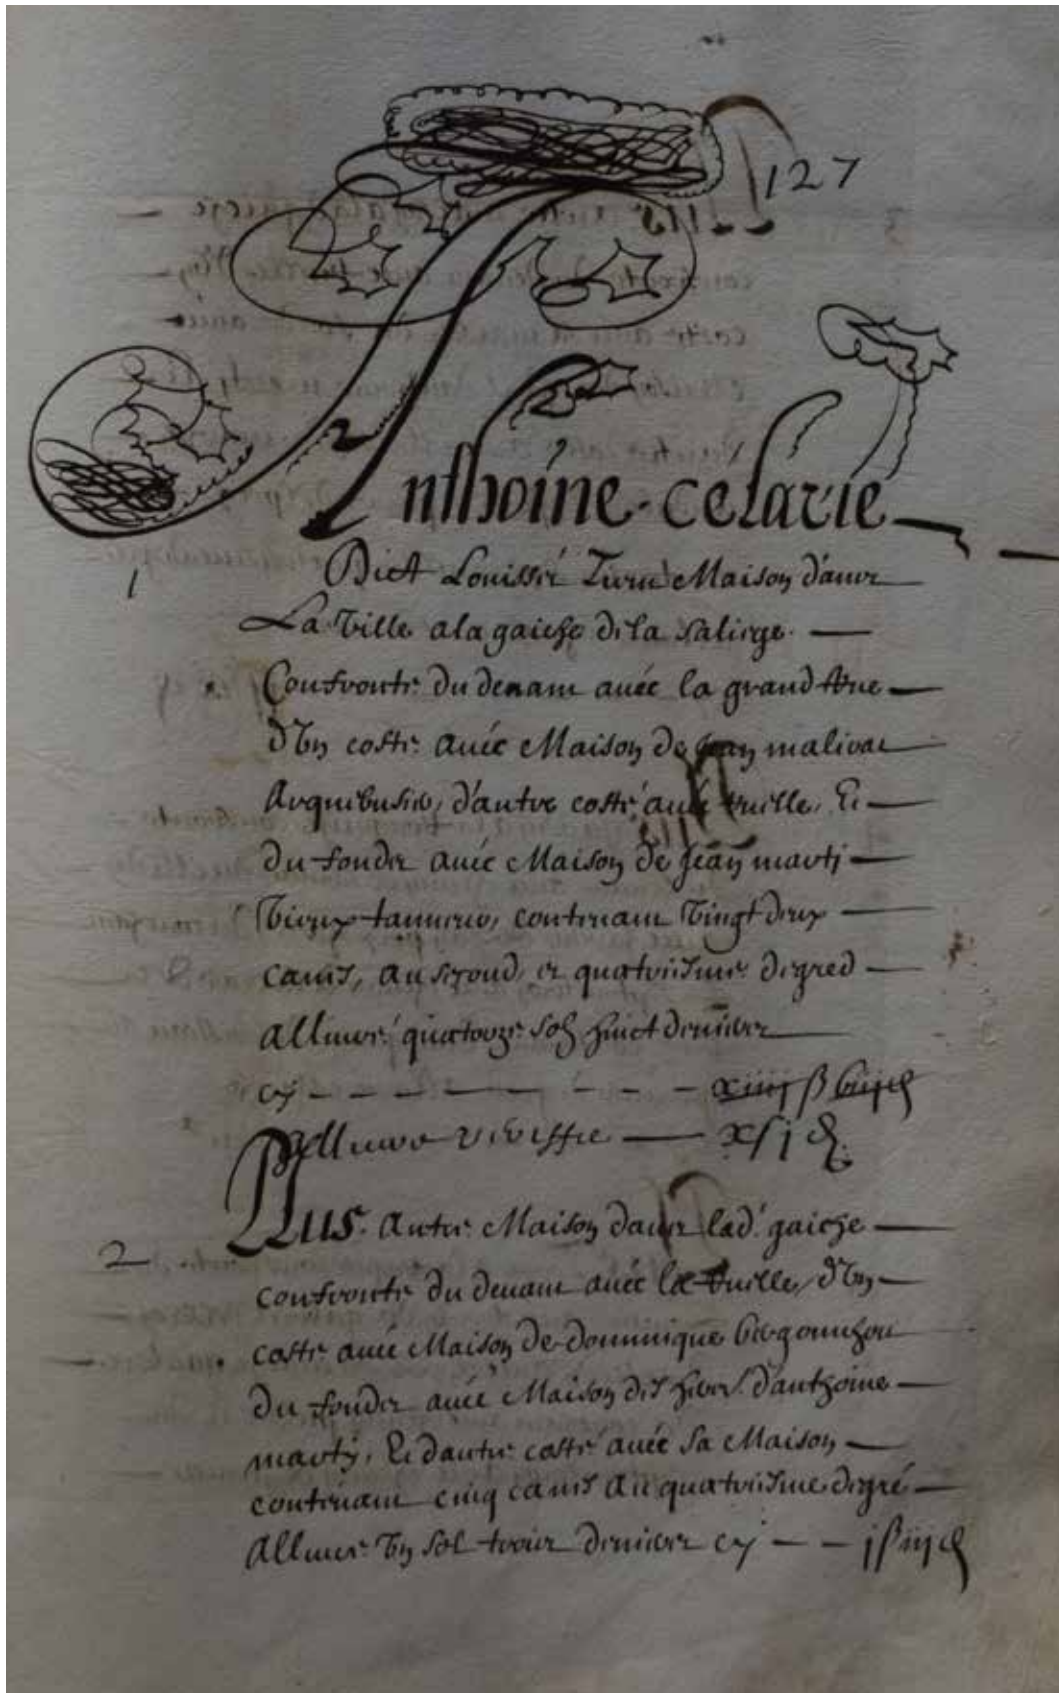 127
Anthoine Celarié
1
Dict Louisset Tient Maison dans
La Ville a la gaiche de la saliege
Confronte du devant avec la grand Rue
d'Un coste avec Maison de Jean malivar
Arquibusier, d'autre coste avec ruille, Et
du fonder avec Maison de Jean marti
Vieux tanneur, contenant Vingt deux
canes, au second et quatriesme degred
Allivré quatorze solz huict deniers
cy xiiij ß viij d
Allivré x ſ j d
2
Plus autre Maison dans lad. gaiche
confronte du devant avec la ruille, d'Un
coste avec Maison de dominique
du fonder avec Maison des hers d'anthoine
marti, Et d'autre coste avec sa Maison
contenant cinq canes au quatriesme degré
Allivré Un sol trois deniers cy j ß iij d